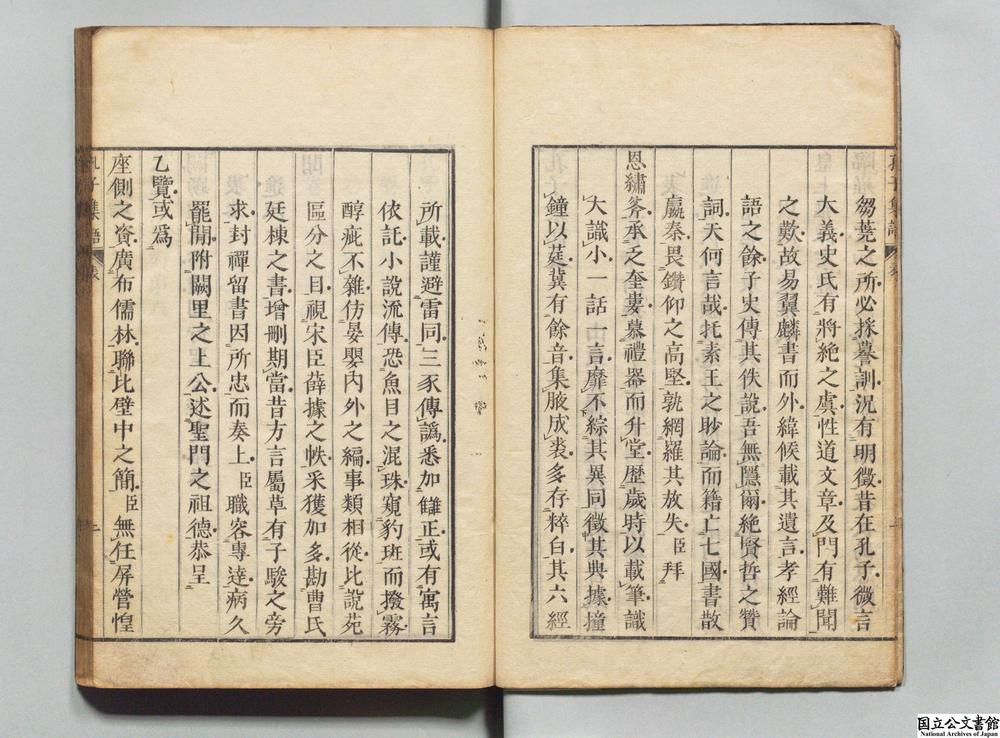 芻蕘之所必採謩訓況有明徵昔在孔子微言
大義史氏有將絶之虞性道文章及門有難聞
之歎故易翼麟書而外緯候載其遺言孝經論
語之餘子史傳其佚說吾無隱爾絶賢哲之贊
詞天何言哉托素王之眇論而籍亡七國書散
嬴秦畏鑽仰之高堅孰網羅其放失臣拜
恩繡斧承乏奎婁慕禮器而升堂歷歲時以載筆識
大識小一話一言靡不綜其異同徵其典據撞
鐘以莛冀有餘音集腋成裘多存粹白其六經
所載謹避雷同三豕傳譌悉加讎正或有寓言
依託小說流傳恐魚目之混珠窺豹班而撥霧
醇疵不雜仿晏嬰内外之編事類相從比說苑
區分之目視宋臣薛據之帙采獲加多勘曹氏
廷棟之書增刪期當昔方言屬草有子駿之旁
求封禪留書因所忠而奏上臣職容專達病久
罷閒附闕里之上公述聖門之祖德恭呈
乙覽或爲
座側之資廣布儒林聯比壁中之簡臣無任屏營惶
孔子集語
表
国立公文書館
National Archives of Japan